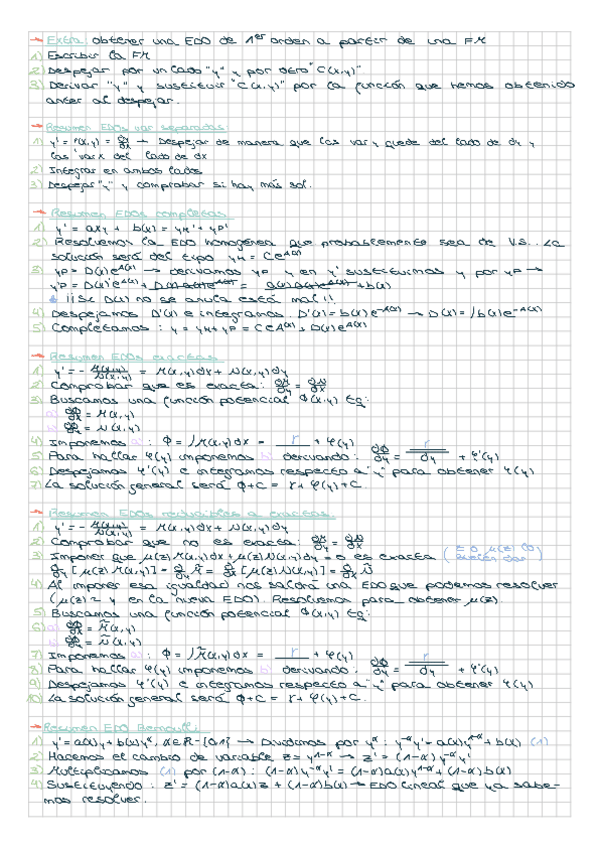 → Extra obtener una EDO de 1er orden a partir de una FM
1) Escribir la FM
2) Despejar por un lado "y" y por otro "C(x,y)"
3) Derivar "y" y sustituir "C(x,y)" por la función que hemos obtenido
antes al despejar.
→ Resumen EDOs var separadas
1) y' = f(x,y) = dy/dx → Despejar de manera que las var y quede del lado de dy y
las var x del lado de dx
2) Integrar en ambos lados
3) Despejar "y" y comprobar si hay más sol.
→ Resumen EDOs completas
1) y' = a(x)y + b(x) = yH' + yP'
2) Resolvemos la EDO homogénea que probablemente sea de V.S.. La
solución será del tipo yH = Ce^A(x)
3) yP = D(x)e^A(x) → derivamos yP y en y' sustituimos y por yP →
y'P = D(x)'e^A(x) + = + b(x)
¡¡Si D(x) no se anula está mal!!
4) Despejamos D'(x) e integramos. D'(x) = b(x)e^-A(x) → D(x) = ∫b(x)e^-A(x)
5) Completamos: y = yH + yP = Ce^A(x) + D(x)e^A(x)
→ Resumen EDOs exactas
1) y' = - M(x,y)/N(x,y) = M(x,y)dx + N(x,y)dy
2) Comprobar que es exacta:
3) Buscamos una función potencial Φ(x,y) tq:
a) = M(x,y)
b) = N(x,y)
4) Imponemos a): Φ = ∫M(x,y)dx = r + φ(y)
5) Para hallar φ(y) imponemos b) derivando: dΦ/dy = r/dy + φ'(y)
6) Despejamos φ'(y) e integramos respecto a "y" para obtener φ(y)
7) La solución general será Φ+C = r + φ(y)+C.
→ Resumen EDOs reducibles a exactas
1) y' = - M(x,y)/N(x,y) = M(x,y)dx + N(x,y)dy
2) Comprobar que no es exacta:
3) Imponer que μ(z)M(x,y)dx + μ(z)N(x,y)dy = 0 es exacta
[μ(z)M(x,y)] = M̃ = [μ(z)N(x,y)] = Ñ
4) Al imponer esa igualdad nos saldrá una EDO que podemos resolver
(μ(z) = y en la nueva EDO). Resolvemos para obtener μ(z).
5) Buscamos una función potencial Φ(x,y) tq:
6) a) = M̃(x,y)
b) = Ñ(x,y)
7) Imponemos a): Φ = ∫M̃(x,y)dx = r + φ(y)
8) Para hallar φ(y) imponemos b) derivando: dΦ/dy = r/dy + φ'(y)
9) Despejamos φ'(y) e integramos respecto a "y" para obtener φ(y)
10) La solución general será Φ+C = r + φ(y)+C.
→ Resumen EDO Bernoulli:
1) y' = a(x)y + b(x)y^α, α∈R-{0,1} → Dividimos por y^α: y^-α y' = a(x)y^1-α + b(x) (1)
2) Hacemos el cambio de variable z = y^1-α → z' = (1-α) y^-α y'
3) Multiplicamos (1) por (1-α): (1-α)y^-α y' = (1-α)a(x)y^1-α + (1-α)b(x)
4) Sustituyendo: z' = (1-α)a(x)z + (1-α)b(x) → EDO lineal que ya sabe-
mos resolver.